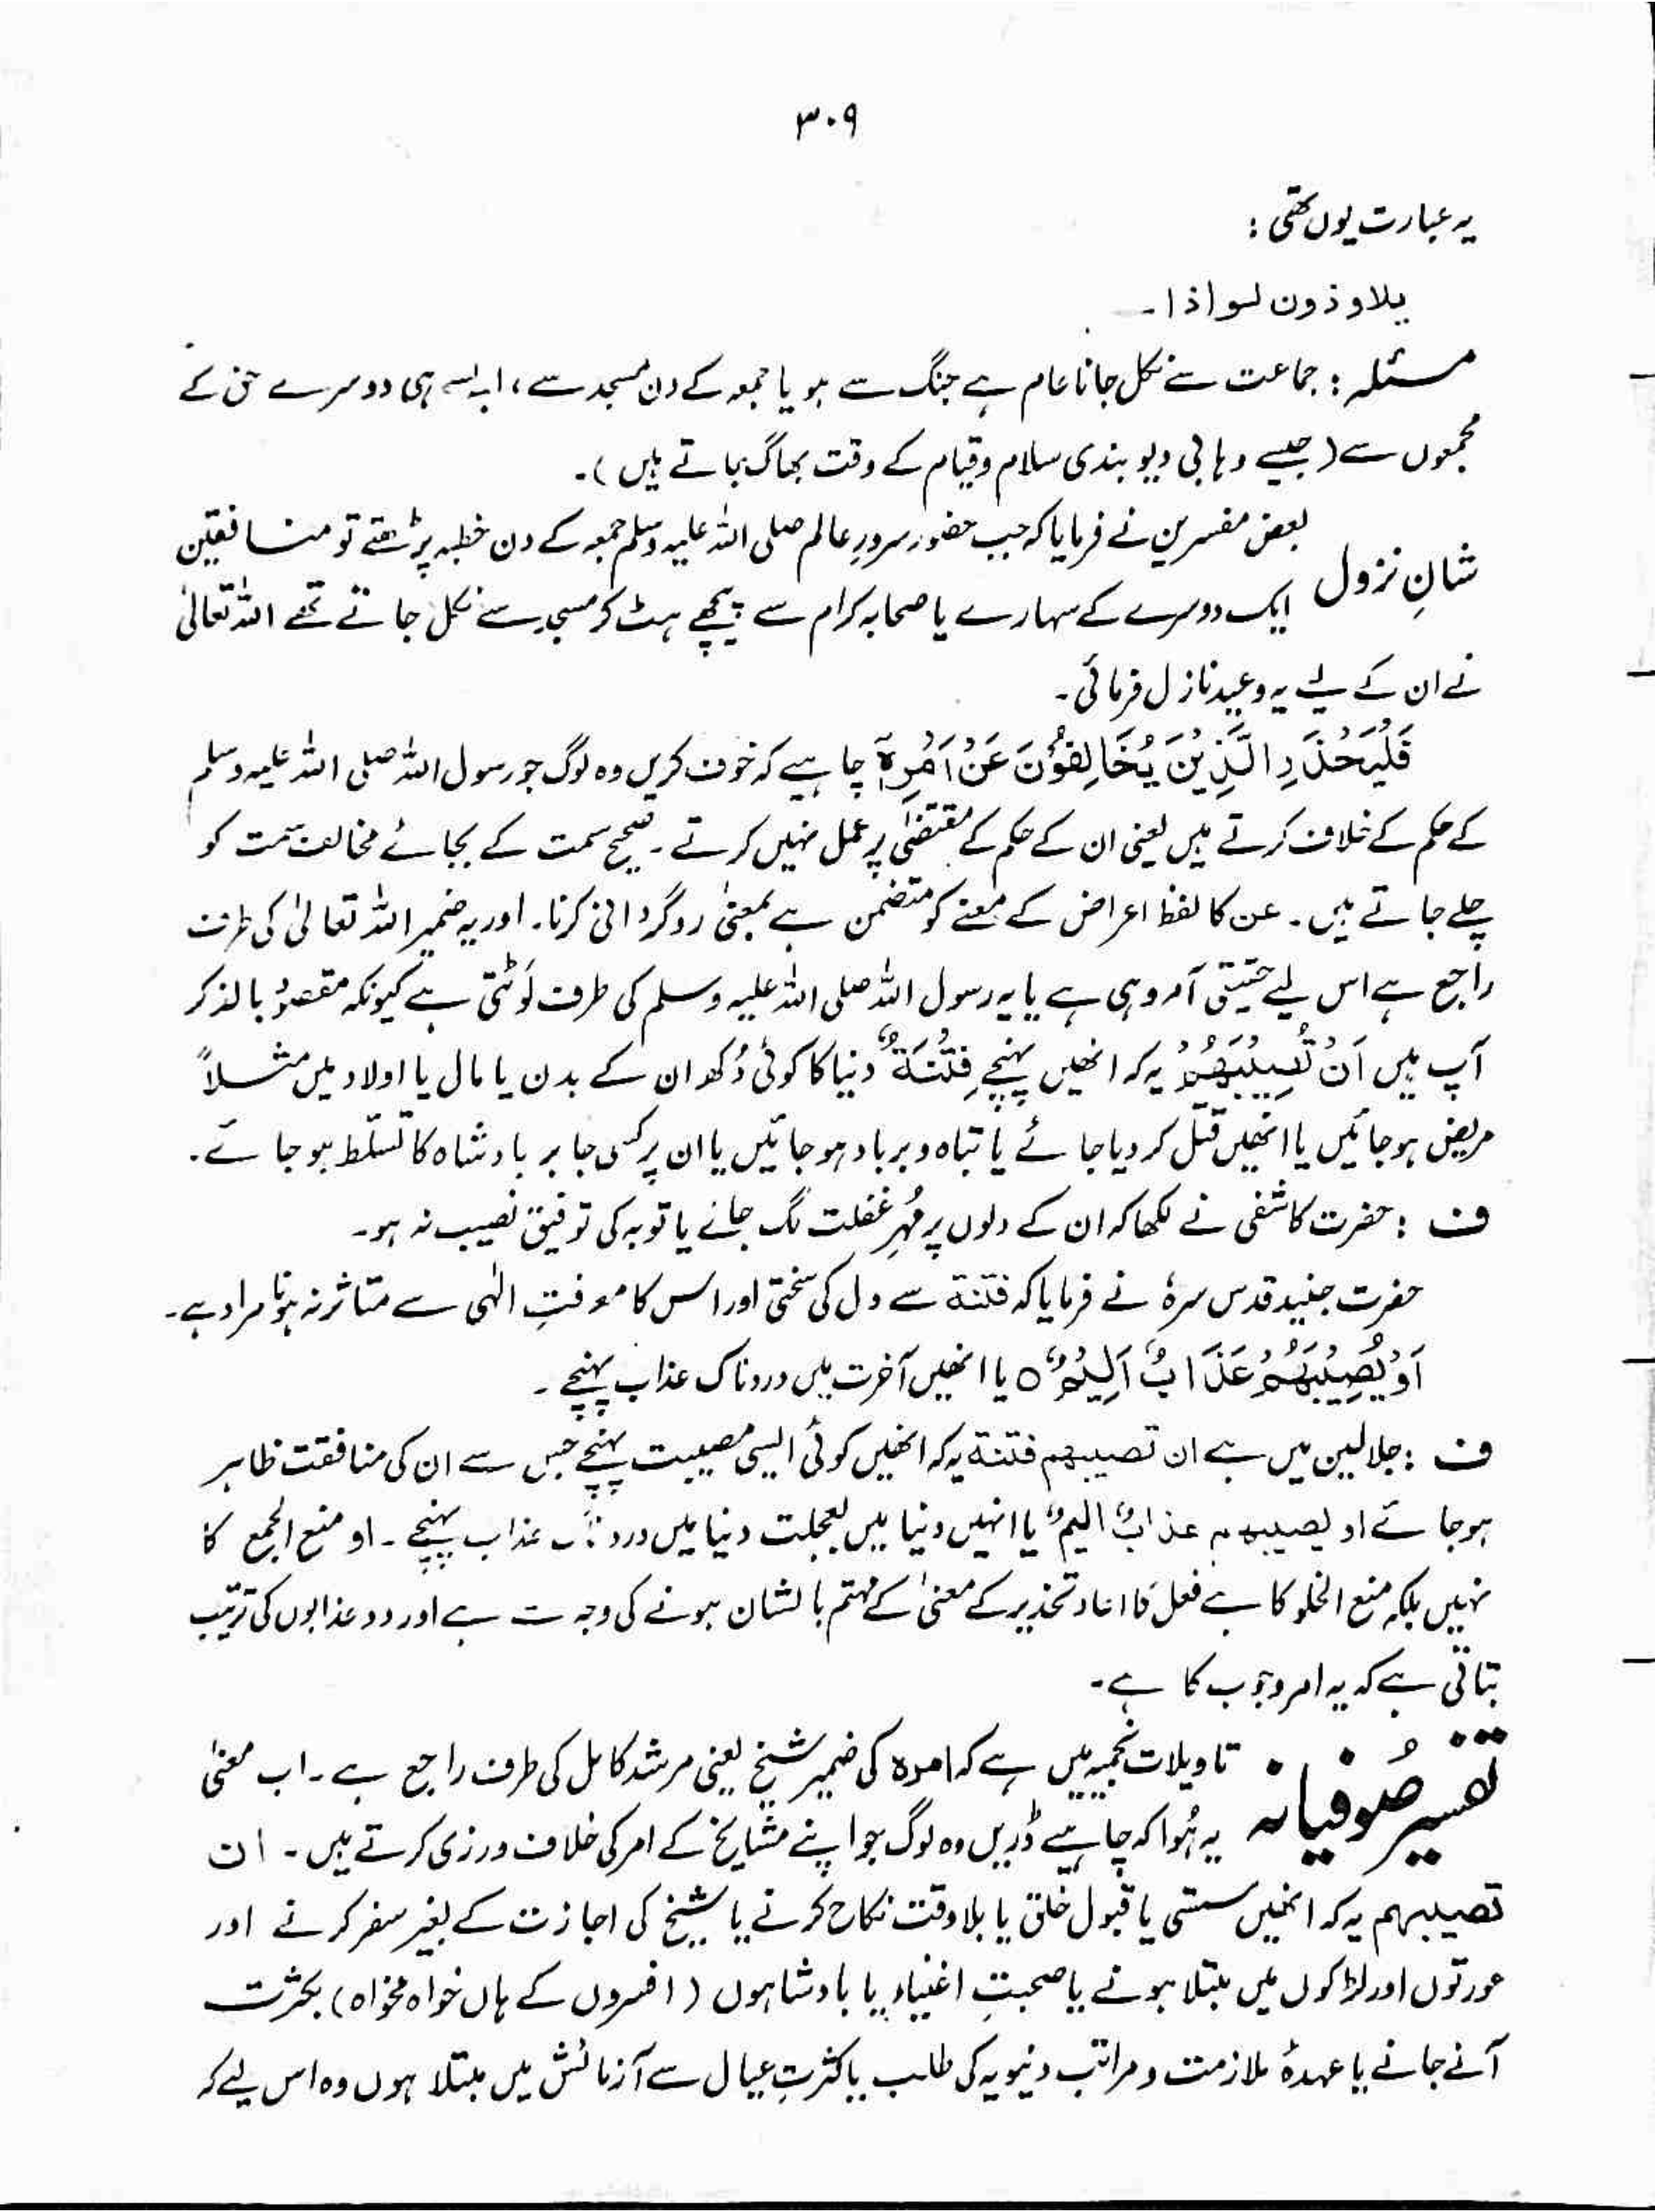 ۳۰۹
یہ عبارت یوں تھی :
یلاوذون لواذا۔
مسئلہ : جماعت سے نکل جانا عام ہے جنگ سے ہو یا جمعہ کے دن مسجد سے ، ایسے ہی دوسرے حق کے
مجمعوں سے ( جیسے وہابی دیوبندی سلام و قیام کے وقت بھاگ جاتے ہیں )۔
بعض مفسرین نے فرمایا کہ جب حضور سرورِ عالم صلی اللہ علیہ وسلم جمعہ کے دن خطبہ پڑھتے تو منافقین
شانِ نزول ایک دوسرے کے سہارے یا صحابہ کرام سے پیچھے ہٹ کر مسجد سے نکل جاتے تھے اللہ تعالیٰ
نے ان کے لیے یہ وعید نازل فرمائی۔
فَلْیَحْذَرِ الَّذِیْنَ یُخَالِفُوْنَ عَنْ اَمْرِہٖٓ چاہیے کہ خوف کریں وہ لوگ جو رسول اللہ صلی اللہ علیہ وسلم
کے حکم کے خلاف کرتے ہیں یعنی ان کے حکم کے مقتضیٰ پر عمل نہیں کرتے ۔ صحیح سمت کے بجائے مخالف سمت کو
چلے جاتے ہیں ۔ عن کا لفظ اعراض کے معنے کو متضمن ہے بمعنیٰ روگردانی کرنا۔ اور یہ ضمیر اللہ تعالیٰ کی طرف
راجع ہے اس لیے حقیقی آمر وہی ہے یا یہ رسول اللہ صلی اللہ علیہ وسلم کی طرف لَوٹتی ہے کیونکہ مقصود بالذکر
آپ ہیں اَنْ تُصِیْبَھُمْ یہ کہ انھیں پہنچے فِتْنَۃٌ دنیا کا کوئی دُکھ ان کے بدن یا مال یا اولاد میں مثلاً
مریض ہو جائیں یا انھیں قتل کر دیا جائے یا تباہ و برباد ہو جائیں یا ان پر کسی جابر بادشاہ کا تسلّط ہو جائے۔
ف : حضرت کاشفی نے لکھا کہ ان کے دلوں پر مُہرِ غفلت لگ جائے یا توبہ کی توفیق نصیب نہ ہو۔
حضرت جنید قدس سرہٗ نے فرمایا کہ فتنۃ سے دل کی سختی اور اس کا معرفتِ الٰہی سے متاثر نہ ہونا مراد ہے۔
اَوْ یُصِیْبَھُمْ عَذَابٌ اَلِیْمٌ ○ یا انھیں آخرت میں دردناک عذاب پہنچے ۔
ف : جلالین میں ہے ان تصیبھم فتنۃ یہ کہ انھیں کوئی ایسی مصیبت پہنچے جس سے ان کی منافقت ظاہر
ہو جائے او یصیبھم عذابٌ الیمٌ یا انہیں دنیا میں بعجلت دنیا میں دردناک عذاب پہنچے ۔ او منع الجمع کا
نہیں بلکہ منع الخلو کا ہے فعل کا اعادہ تحذیر کے معنیٰ کے مہتم بالشان ہونے کی وجہ سے ہے اور دو عذابوں کی ترتیب
بتاتی ہے کہ یہ امر وجوب کا ہے۔
تفسیر صُوفیانہ تاویلات نجمیہ میں ہے کہ امرہ کی ضمیر شیخ یعنی مرشد کامل کی طرف راجع ہے ۔ اب معنیٰ
یہ ہُوا کہ چاہیے ڈریں وہ لوگ جو اپنے مشایخ کے امر کی خلاف ورزی کرتے ہیں ۔ ان
تصیبھم یہ کہ انھیں سستی یا قبول خلق یا بلا وقت نکاح کرنے یا شیخ کی اجازت کے بغیر سفر کرنے اور
عورتوں اور لڑکوں میں مبتلا ہونے یا صحبتِ اغنیاء یا بادشاہوں ( افسروں کے ہاں خواہ مخواہ ) بکثرت
آنے جانے یا عہدۂ ملازمت و مراتب دنیویہ کی طلب یا کثرتِ عیال سے آزمائش میں مبتلا ہوں وہ اس لیے کہ